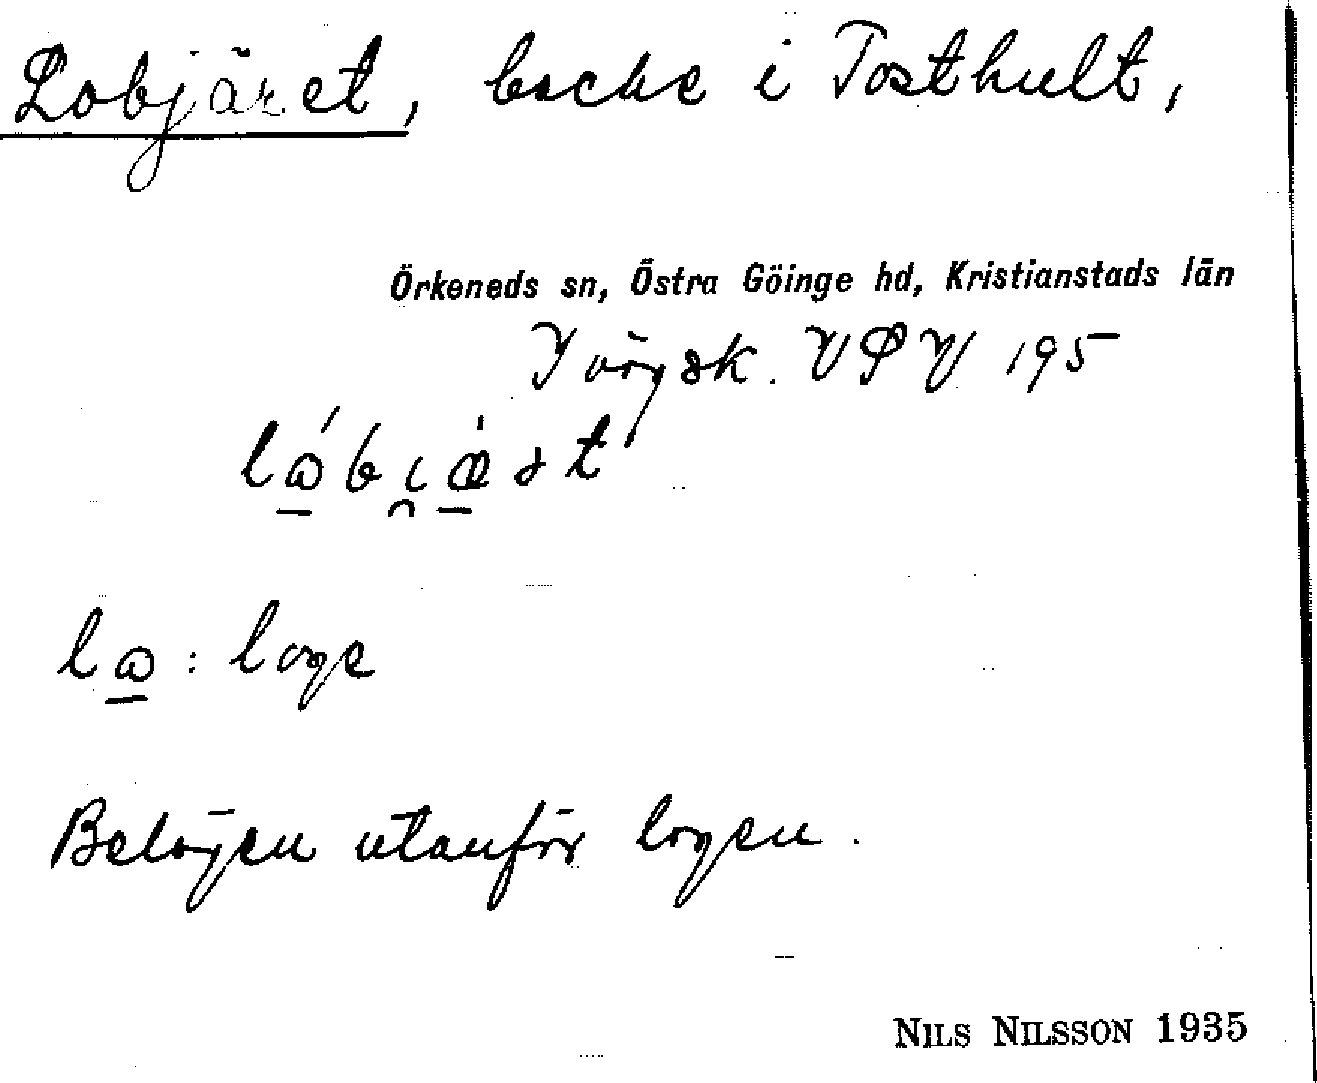 Lobjäret, backe i Tosthult,
Örkeneds sn, Östra Göinge hd, Kristianstads län
VΦV 195
la : loge
Belägen utanför logen.
NILS NILSSON 1935